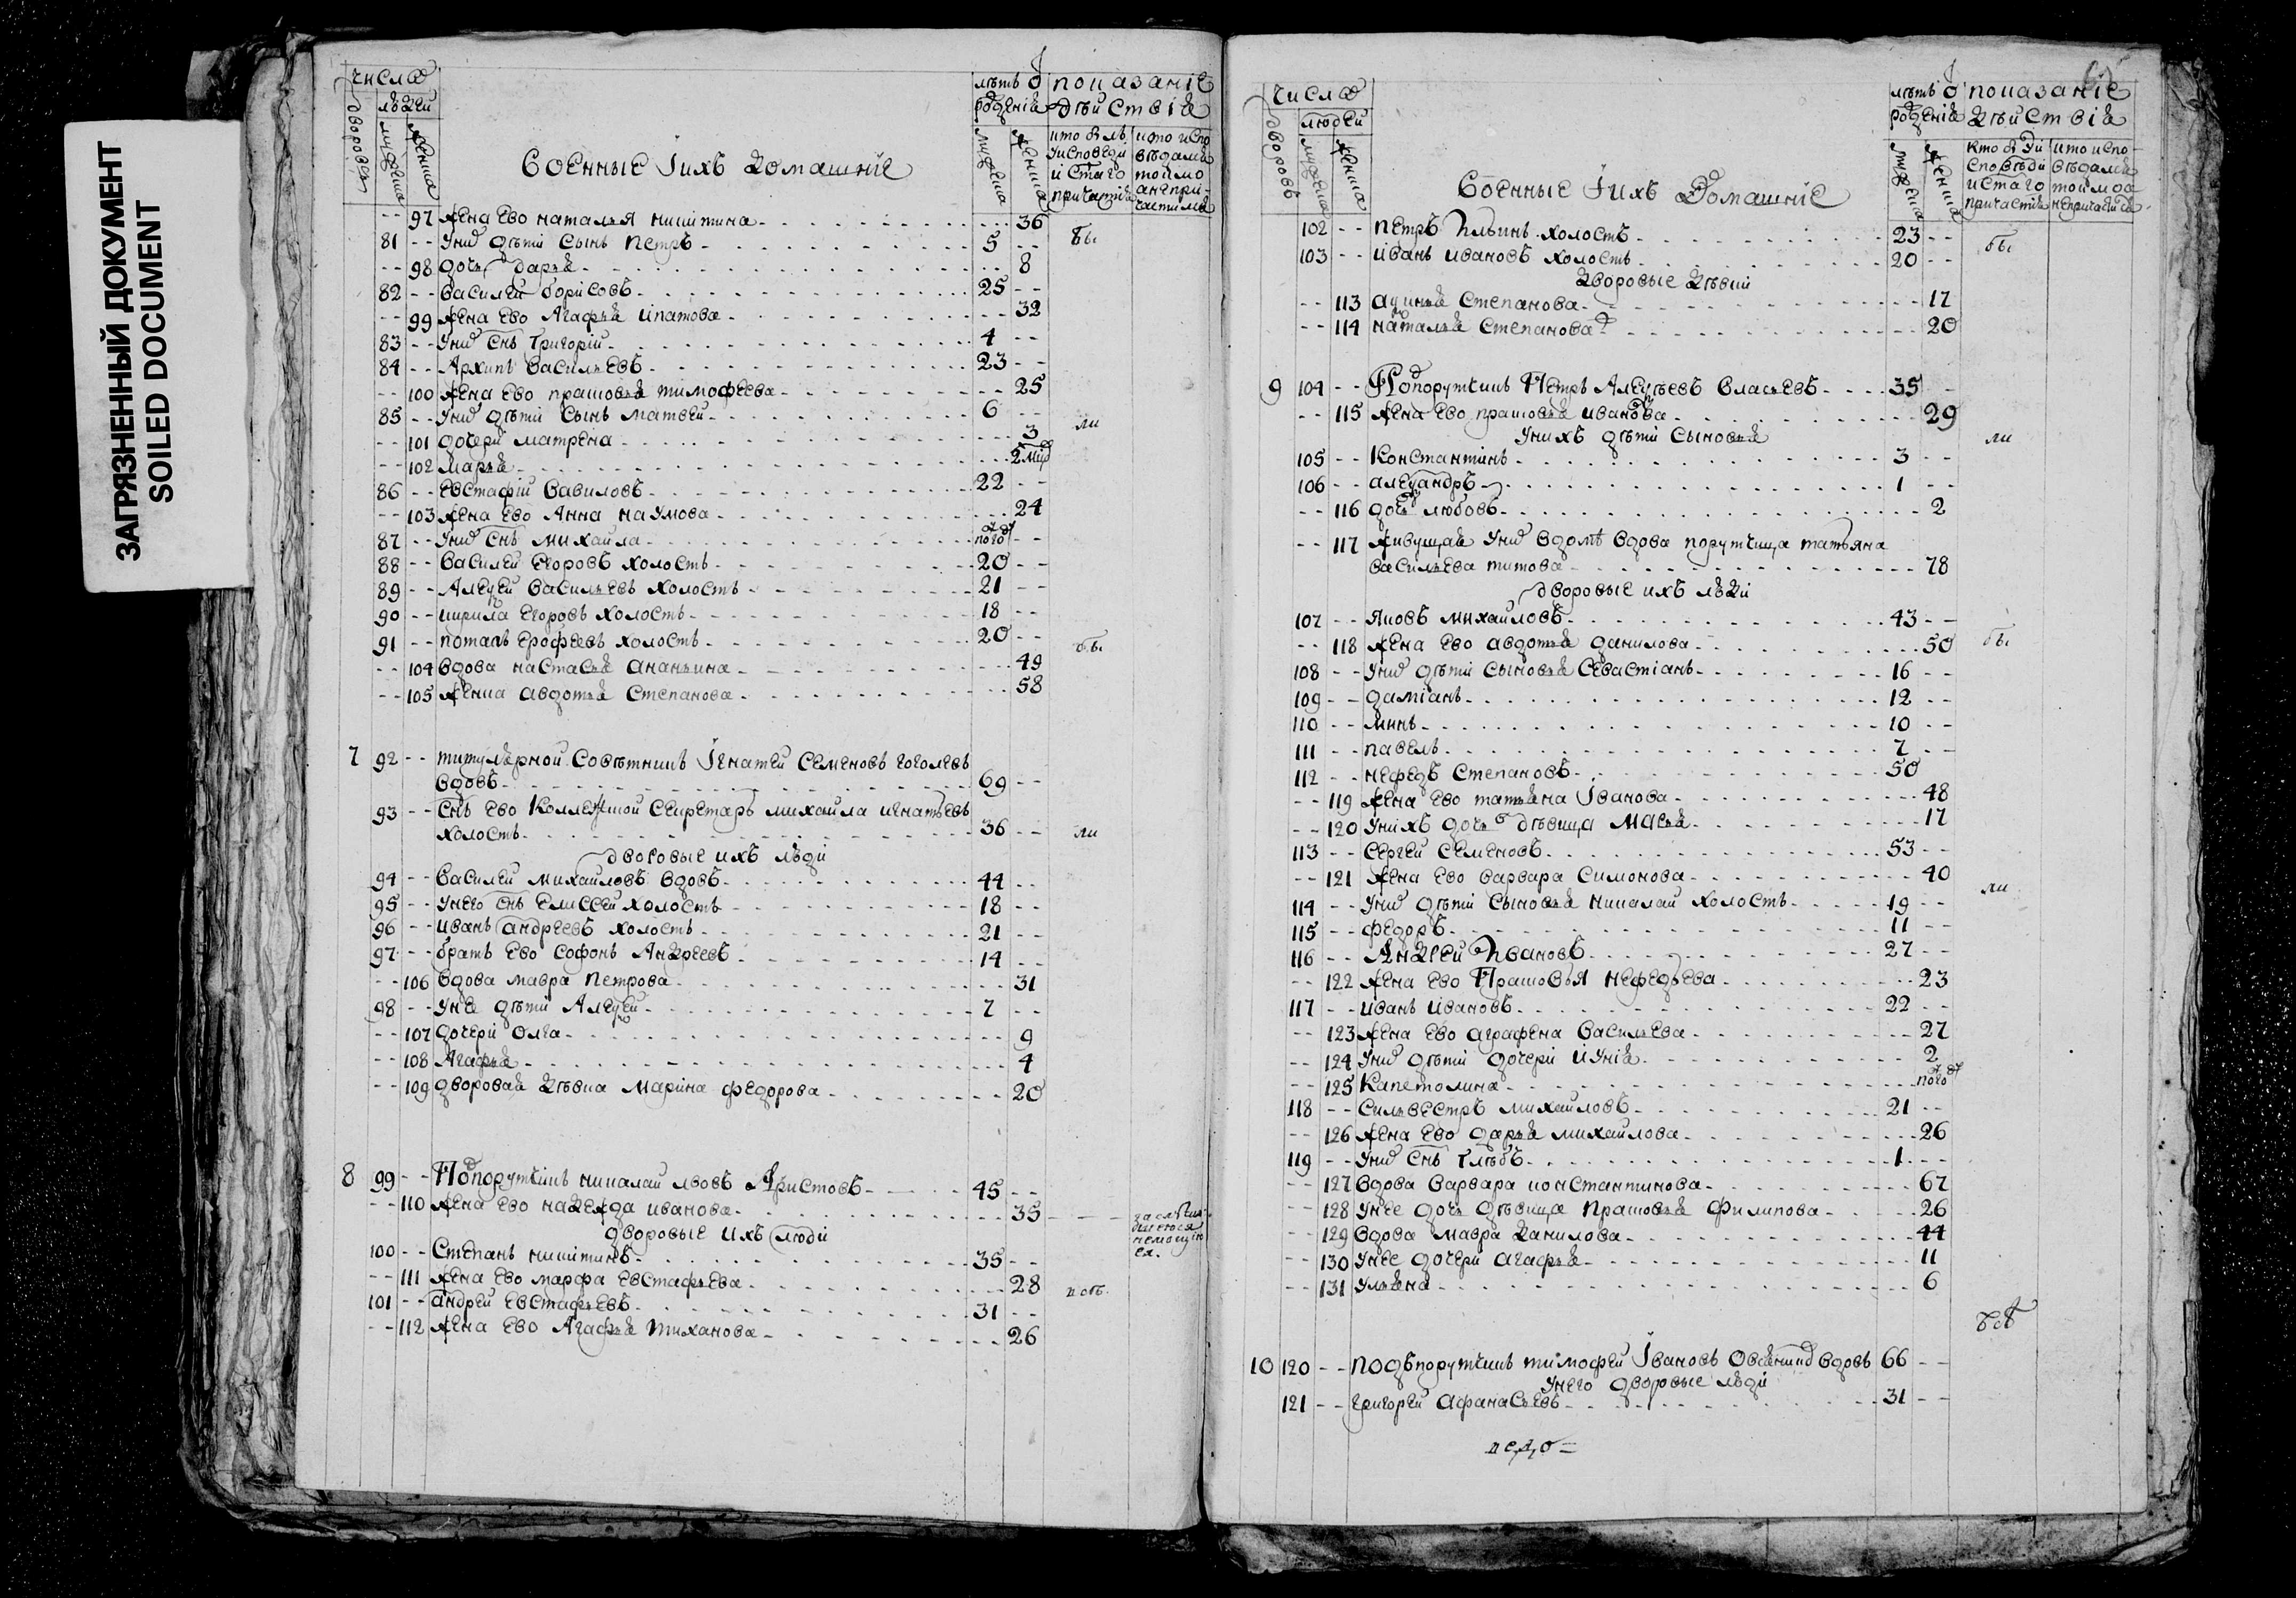 ЗАГРЯЗНЕННЫЙ ДОКУМЕНТ
SOILED DOCUMENT
числа
дворовъ
людей
мужеска
женска
Военные iихъ домашнiе
лѣтъ ѿ рожденiя
мужеска
женска
показанiе дѣйствiя
кто былъ у исповеди и стаго причастiя
кто испо ведался токмо а непри- частился
-- 97 жена ево наталья никитина 36
81 -- Унихъ дѣти сынъ петръ 5 --
бы
-- 98 дочь дарья 8
82 -- василей борисовъ 25 --
-- 99 жена ево Агафья ипатова 32
83 -- Унихъ снъ григорiй 4 --
84 -- Архипъ васильевъ 23 --
-- 100 жена ево прасковья тимофеева 25
85 -- Унихъ дѣти сынъ матвей 6 --
ли
-- 101 дочери матрена 3
-- 102 марья 2 мц
86 -- Евстафiй вавиловъ 22 --
-- 103 жена ево Анна наумова 24
87 -- Унихъ снъ михаила полгода --
88 -- василей Егоровъ холостъ 20 --
89 -- Алексѣй васильевъ холостъ 21 --
90 -- кирила егоровъ холостъ 18 --
91 -- потапъ Ерофеевъ холостъ 20 --
бы
-- 104 вдова настасья ананьина 49
-- 105 женка авдотья степанова 58
7 92 -- титулярной советникъ Iгнатей семеновъ гоголевъ
вдовъ 69 --
93 -- снъ ево коллежской секретарь михаила игнатьевъ
холостъ 36 --
ли
дворовые ихъ люди
94 -- василей михайловъ вдовъ 44 --
95 -- Унего снъ елиссей холостъ 18 --
96 -- иванъ андреевъ холостъ 21 --
97 -- братъ ево софонъ Андреевъ 14 --
-- 106 вдова мавра петрова 31
98 -- Унее дѣти Алексѣй 7 --
-- 107 дочери олга 9
-- 108 Агафья 4
-- 109 дворовая дѣвка марина федорова 20
8 99 -- Подпорутчикъ николай львовъ Аристовъ 45 --
-- 110 жена ево надежда иванова 35
дворовые ихъ люди
100 -- степанъ никитинъ 35 --
-- 111 жена ево марфа евстафьева 28
101 -- андрей евстафьевъ 31 --
-- 112 жена ево Агафья тиханова 26
числа
дворовъ
людей
мужеска
женска
Военные iихъ домашнiе
лѣтъ ѿ рожденiя
мужеска
женска
показанiе дѣйствiя
102 -- петръ ильинъ холостъ 23 --
бы
103 -- иванъ ивановъ холостъ 20 --
дворовые дѣвки
-- 113 аксинья степанова 17
-- 114 наталья степанова 20
9 104 -- Подпорутчикъ Петръ Алексѣевъ власьевъ 35 --
-- 115 жена ево прасковья иванова 29
Унихъ дѣти сыновья
ли
105 -- константинъ 3 --
106 -- александръ 1 --
-- 116 дочь любовь 2
-- 117 живущая Унихъ вдомѣ вдова порутчица татьяна
васильева титова 78
дворовые ихъ люди
107 -- яковъ михайловъ 43 --
-- 118 жена ево авдотья данилова 50
бы
108 -- Унихъ дѣти сыновья севастiанъ 16 --
109 -- дамiанъ 12 --
110 -- минъ 10 --
111 -- павелъ 7 --
112 -- нефедъ степановъ 50
-- 119 жена ево татьяна Iванова 48
-- 120 Унихъ дочь дѣвица Марья 17
113 -- сергей семеновъ 53 --
-- 121 жена ево варвара симонова 40
ли
114 -- Унихъ дѣти сыновья николай холостъ 19 --
115 -- федоръ 11 --
116 -- Андрей Ивановъ 27 --
-- 122 жена ево Прасковья нефедьева 23
117 -- иванъ ивановъ 22 --
-- 123 жена ево аграфена васильева 27
-- 124 Унихъ дѣти дочери иунiя 2
-- 125 капетолина полгода
118 -- сильвестръ михайловъ 21 --
-- 126 жена ево дарья михайлова 26
119 -- Унихъ снъ глѣбъ 1 --
-- 127 вдова варвара константинова 67
-- 128 Унее дочь дѣвица прасковья филипова 26
-- 129 вдова мавра данилова 44
-- 130 Унее дочери агафья 11
-- 131 ульяна 6
10 120 -- подъпорутчикъ тимофей Iвановъ овсянникъ вдовъ 66 --
Унего дворовые люди
121 -- григорей афанасьевъ 31 --